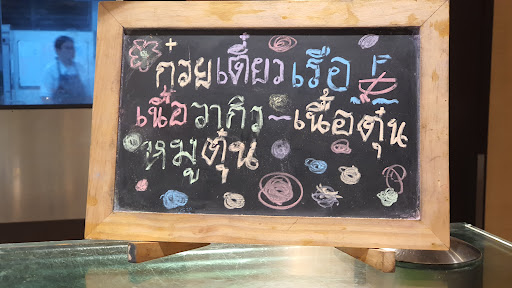 ก๋วยเตี๋ยวเรือ
เนื้อวากิว~เนื้อตุ๋น
หมูตุ๋น